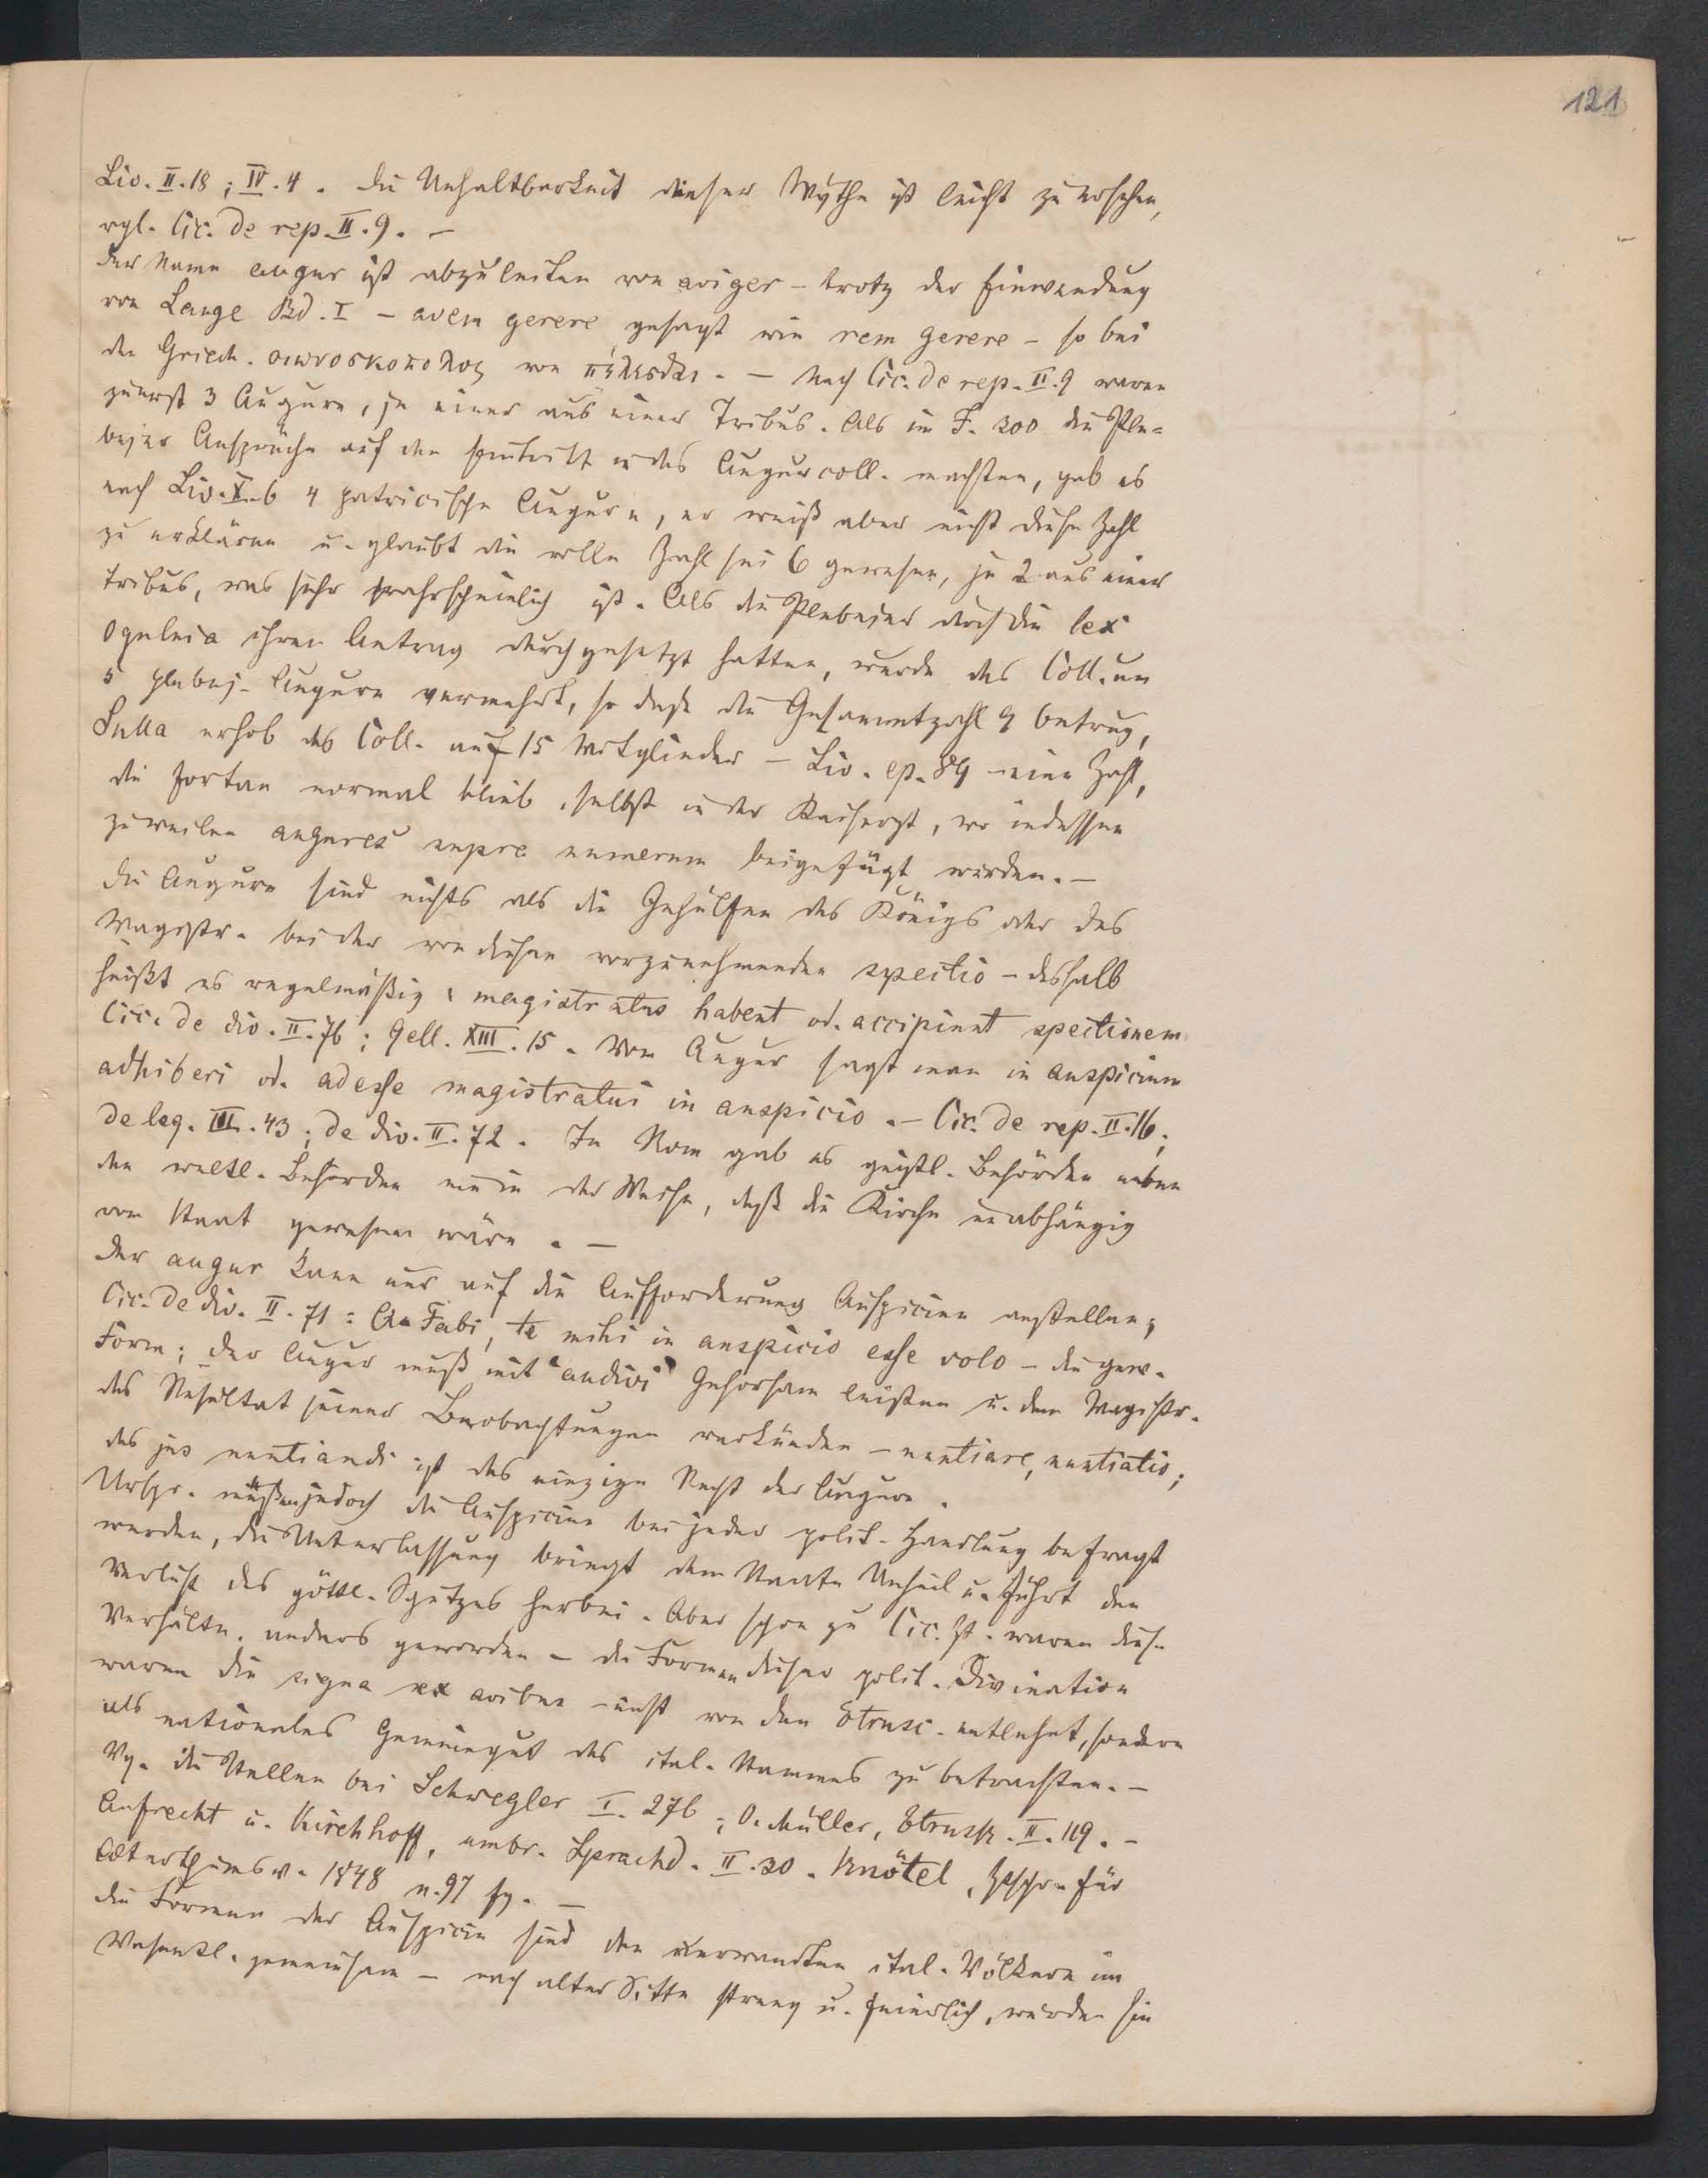 121
Liv. II. 18; IV. 4. Die Unhaltbarkeit dieser Mythe ist leicht zu ersehen,
vgl. Cic. de rep. II. 9. –
Der Name augur ist abzuleiten von aviger – trotz der Einwendung
von Lange Bd. I – avem gerere gesagt wie rem gerere – so bei
den Griech. οιωνοσκοπολος von πέλεσθαι. – Nach Cic. de rep. II. 9 waren
zuerst 3 Augurn, je einer aus einer Tribus. Als im J. 300 die Ple-
bejer Ansprüche auf den Eintritt in das Augurcoll. machten, gab es
nach Liv. X. 6 4 patricische Augurn, er weiß aber nicht diese Zahl
zu erklären u. glaubt die volle Zahl sei 6 gewesen, je 2 aus einer
Tribus, was sehr wahrscheinlich ist. Als die Plebejer durch die lex
Ogulnia ihren Antrag durchgesetzt hatten, wurde das Coll. um
5 plebej. Augurn vermehrt, so daß die Gesammtzahl 9 betrug,
Sulla erhob das Coll. auf 15 Mitglieder – Liv. ep. 89 – eine Zahl,
die fortan normal blieb, selbst in der Kaiserzt, wo indessen
zuweilen augures supra numerum beigefügt werden. –
Die Augurn sind nichts als die Gehülfen des Königs oder des
Magistr. bei der von diesen vorzunehmenden spectio – deshalb
heißt es regelmäßig: magistratus habent od. accipiunt spectionem
Cic. de div. II. 76; Gell. XIII. 15. Vom Augur sagt man in auspicium
adhiberi od. adesse magistratui in auspicio. – Cic. de rep. II. 16;
de leg. III. 43; de div. II. 72. In Rom gab es geistl. Behörden neben
den weltl. Behörden nie in der Weise, daß die Kirche unabhängig
vom Staat gewesen wäre. –
Der augur kann nur auf die Aufforderung Auspicien anstellen;
Cic. de div. II. 71: Q. Fabi, te mihi in auspicio esse volo – die gew.
Form; der Augur muß mit "audivi" Gehorsam leisten u. dem Magistr.
das Resultat seiner Beobachtungen verkünden – nuntiare, nuntiatio;
das jus nuntiandi ist das einzige Recht der Augurn.
Urspr. müßen jedoch die Auspicien bei jeder polit. Handlung befragt
werden, die Unterlassung bringt dem Staate Unheil u. führt den
Verlust des göttl. Schutzes herbei. Aber schon zu Cic. Zt. waren diese
Verhältn. anders geworden – die Formen dieser polit. Divination
waren die signa ex avibus – nicht von den Etrusc. entlehnt, sondern
als nationales Gemeingut des ital. Stammes zu betrachten. –
Vg. die Stellen bei Schwegler I. 276; O. Müller, Etrusk. II. 119. –
Aufrecht u. Kirchhoff, umbr. Sprachd. II. 30. Knötel, Ztschr. für
Alterthumsw. 1848 n. 97 fg. –
Die Formen der Auspicien sind den verwandten ital. Völkern im
Wesentl. gemeinsam – nach alter Sitte streng u. feierlich, wurden sie